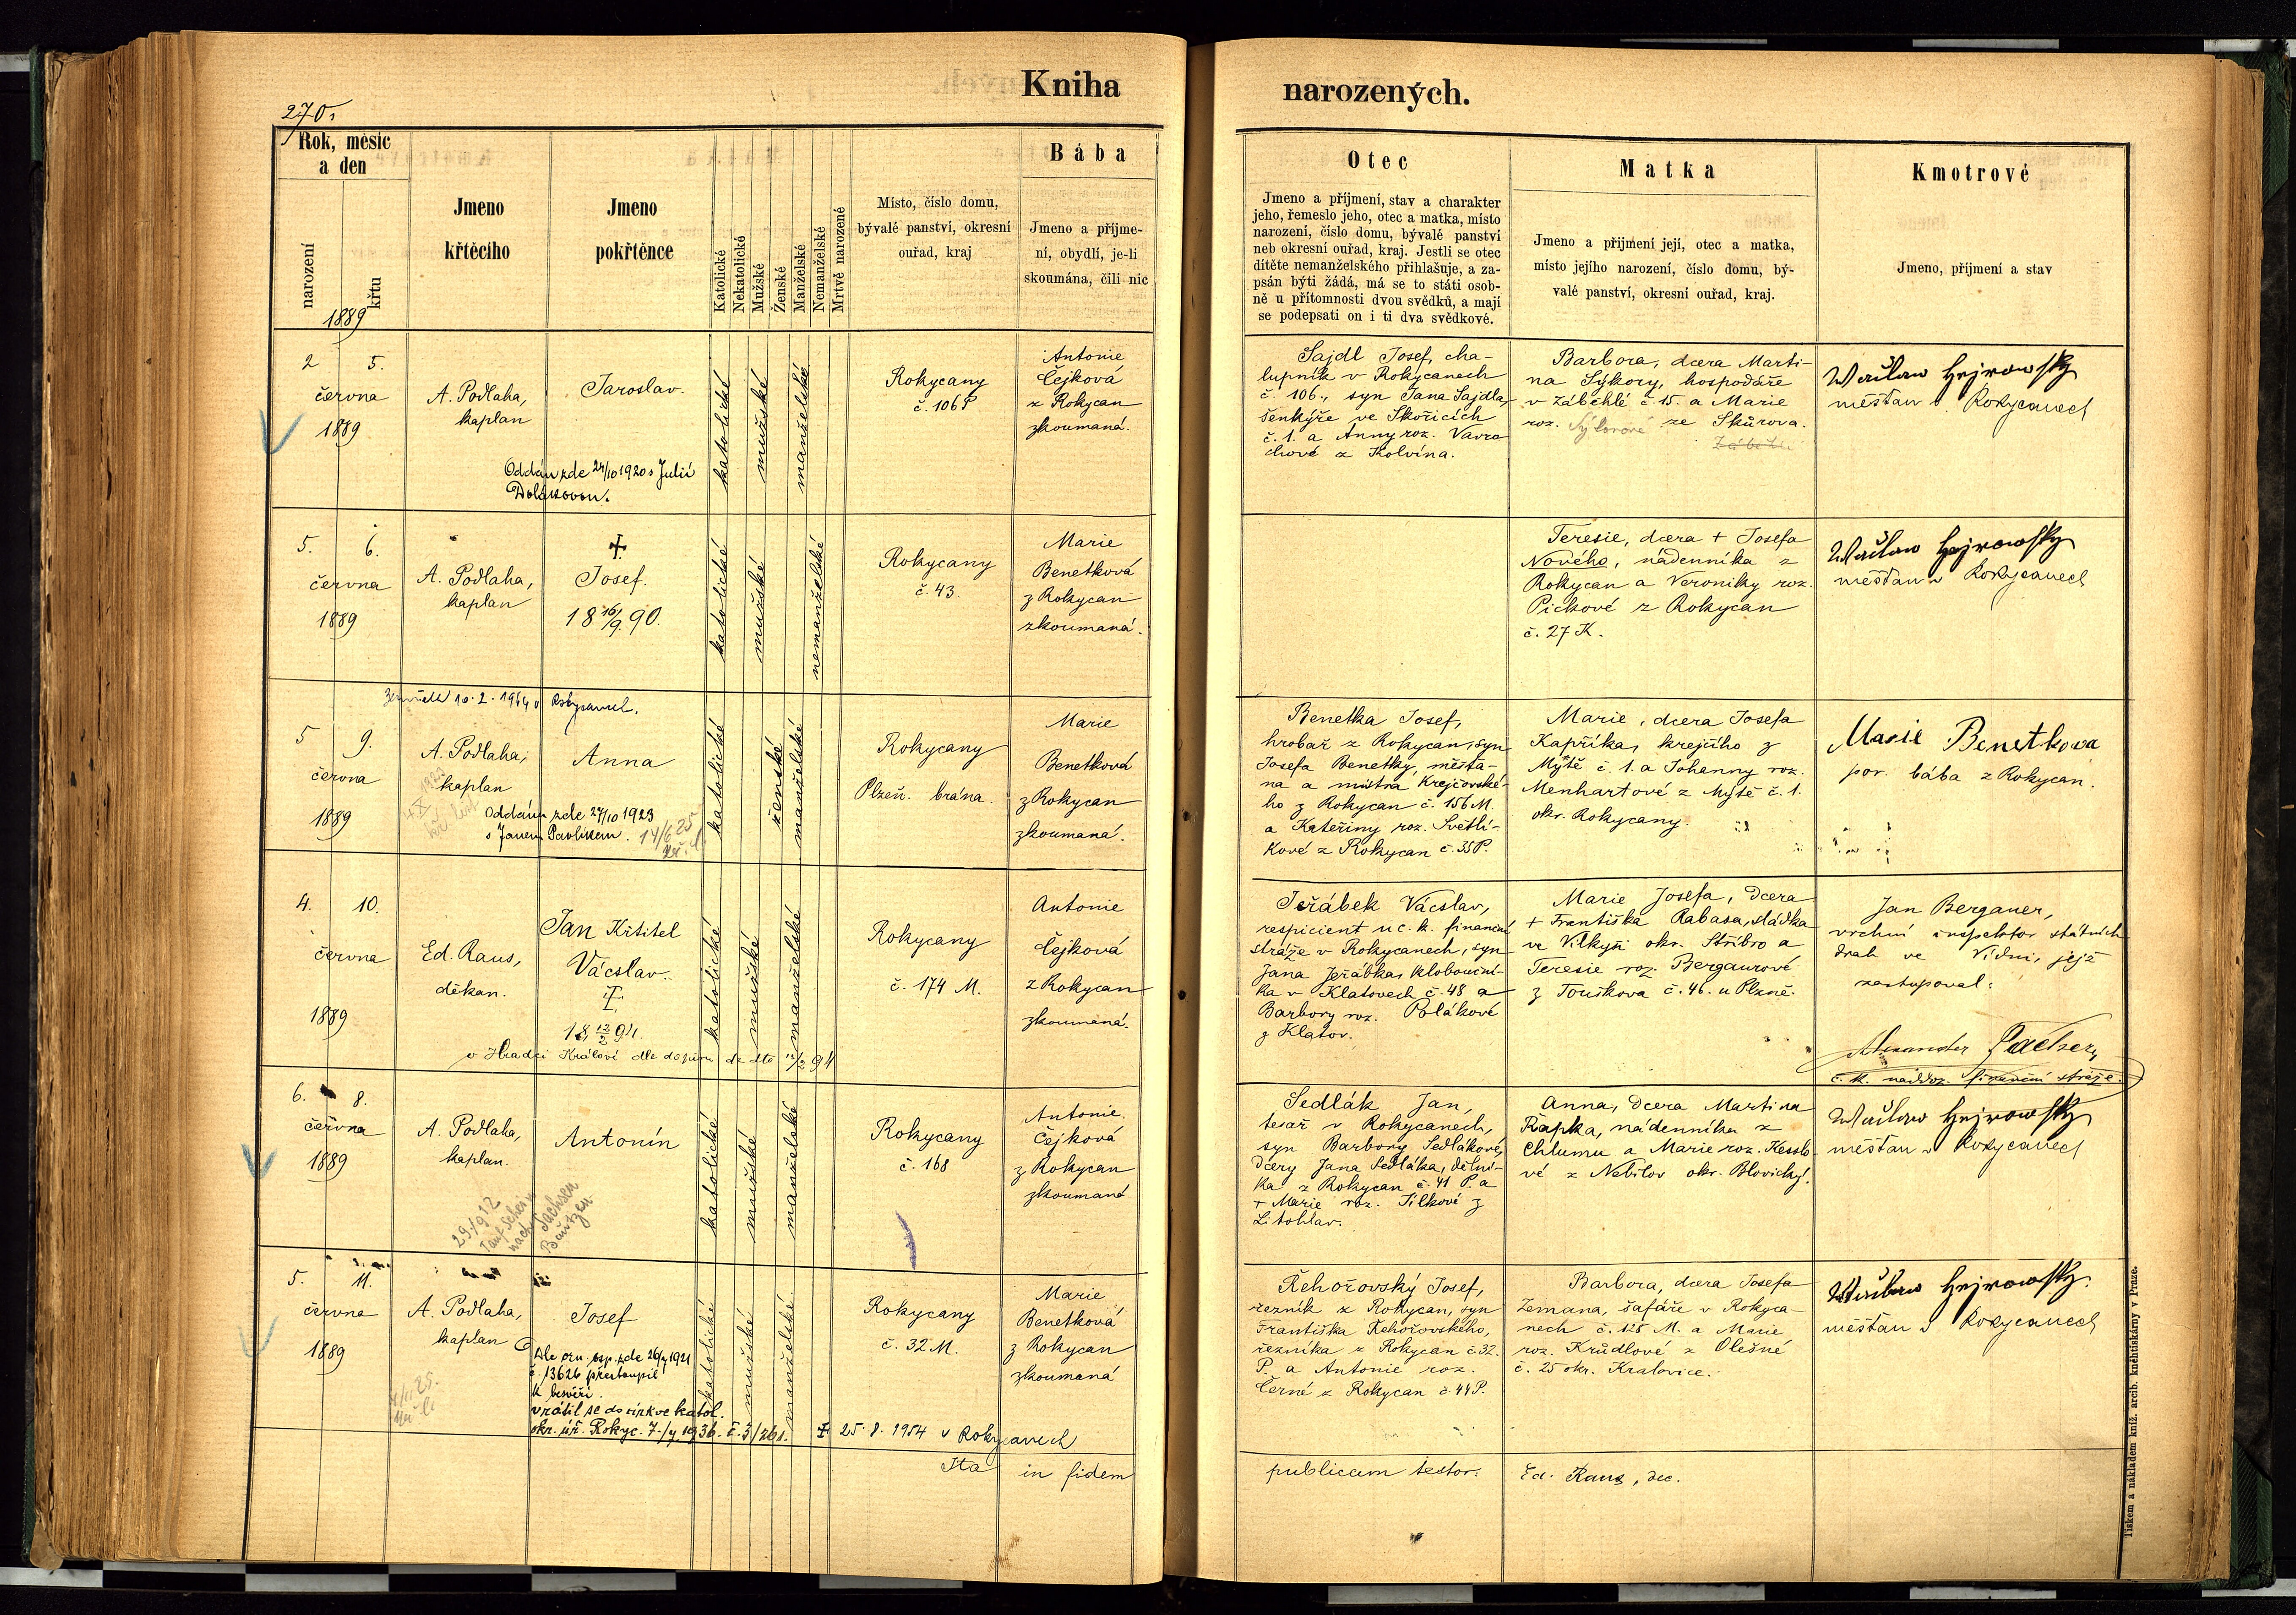 270.
Kniha narozených.
Rok, měsíc
a den
narození
křtu
1889
Jmeno
křtěcího
Jmeno
pokřtěnce
Katolické
Nekatolické
Mužské
Ženské
Manželské
Nemanželské
Mrtvě narozené
Místo, číslo domu,
bývalé panství, okresní
ouřad, kraj
Bába
Jmeno a příjme-
ní, obydlí, je-li
skoumána, čili nic
Otec
Jmeno a příjmení, stav a charakter
jeho, řemeslo jeho, otec a matka, místo
narození, číslo domu, bývalé panství
neb okresní ouřad, kraj. Jestli se otec
dítěte nemanželského přihlašuje, a za-
psán býti žádá, má se to státi osob-
ně u přítomnosti dvou svědků, a mají
se podepsati on i ti dva svědkové.
Matka
Jmeno a přijmení její, otec a matka,
místo jejího narození, číslo domu, bý-
valé panství, okresní ouřad, kraj.
Kmotrové
Jmeno, příjmení a stav
2 5.
června
1889
A. Podlaha,
kaplan
Jaroslav.
Oddán zde 24/10 1920 s Julií
katolické
mužské
manželské
Rokycany
č. 106 P
Antonie
Čejková
z Rokycan
zkoumaná.
Sajdl Josef, cha-
lupník v Rokycanech
č. 106, syn Jana Sajdla,
šenkýře ve Skořicích
č. 1. a Anny roz. Vavro
chové z Kolvína.
Barbora, dcera Marti-
na Sýkory, hospodáře
v Záběhlé č. 15. a Marie
roz. Sýkorové ze Skůrova.
Wačlaw Hejrowský
měšťan v Rokycanech
5. 6.
června
1889
A. Podlaha,
kaplan
+
Josef.
18 16/9. 90.
katolické
mužské
nemanželské
Rokycany
č. 43.
Marie
Benetková
z Rokycan
zkoumaná.
Teresie, dcera + Josefa
Nového, nádenníka z
Rokycan a Veroniky roz.
Pickové z Rokycan
č. 27 K.
Wačlaw Hejrowský
měšťan v Rokycanech
Zemřela 10. 2. 1964 v Rokycanech.
5 9.
června
1889
A. Podlaha,
kaplan
Anna
Oddána zde 27/10 1923
s Janem Pavlíkem. 14/6 25
katolické
ženské
manželské
Rokycany
Plzeň. brána.
Marie
Benetková
z Rokycan
zkoumaná.
Benetka Josef,
hrobař z Rokycan, syn
Josefa Benetky, měšťa-
na a mistra krejčovské-
ho z Rokycan č. 156 M.
a Kateřiny roz. Světlí-
kové z Rokycan č. 35 P.
Marie, dcera Josefa
Kapříka, krejčího z
Mýtě č. 1. a Johanny roz.
Menhartové z Mýtě č. 1.
okr. Rokycany.
Marie Benetkova
por. bába z Rokycan.
4. 10.
června
1889
Ed. Raus,
děkan.
Jan Křtitel
Vácslav.
+
18 12/2 94.
v Hradci Králové dle dopisu dz dto 12/2 94
katolické
mužské
manželské
Rokycany
č. 174 M.
Antonie
Čejková
z Rokycan
zkoumaná.
Jeřábek Vácslav,
respicient u c. k. finanční
stráže v Rokycanech, syn
Jana Jeřábka, klobouční-
ka v Klatovech č. 48 a
Barbory roz. Polákové
z Klatov.
Marie Josefa, dcera
+ Františka Rabasa, sládka
ve Vlkyši okr. Stříbro a
Teresie roz. Bergaurové
z Touškova č. 46. u Plzně.
Jan Bergauer,
vrchní inspektor státních
drah ve Vídni, jejž
zastupoval:
Alexander
c. k. finanční stráže.
6. 8.
června
1889
A. Podlaha,
kaplan.
Antonín
29./9 12
Taufschein
nach Sachsen
Bautzen
katolické
mužské
manželské
Rokycany
č. 168
Antonie
Čejková
z Rokycan
zkoumaná
Sedlák Jan,
tesař v Rokycanech,
syn Barbory Sedlákové,
dcery Jana Sedláka, dělní-
ka z Rokycan č. 41 P. a
+ Marie roz. Šilkové z
Litohlav.
Anna, dcera Martina
Řapka, nádenníka z
Chlumu a Marie roz. Kesslo-
vé z Nebílov okr. Blovický.
Wačlaw Hejrowský
měšťan v Rokycanech
5. 11.
června
1889
A. Podlaha,
kaplan
Josef
Dle ozn. osp. zde 26/4 1921
č. 13626 přestoupil
k bezvěří.
vrátil se do církve katol.
okr. úř. Rokyc. 7./4 1936. č. 3/261.
+ 25. 8. 1954 v Rokycanech
katolické
mužské
manželské
Rokycany
č. 32 M.
Marie
Benetková
z Rokycan
zkoumaná
Řehořovský Josef,
řezník z Rokycan, syn
Františka Řehořovského,
řezníka z Rokycan č. 32.
P. a Antonie roz.
Černé z Rokycan č. 44 P.
Barbora, dcera Josefa
Zemana, šafáře v Rokyca-
nech č. 128 M. a Marie
roz. Krůdlové z Olešné
č. 25 okr. Kralovice.
Wačlaw Hejrowský.
měšťan v Rokycanech
Ita in fidem publicam testor. Ed. Raus, dec.
Tiskem a nákladem kníž. arcib. knihtiskárny v Praze.